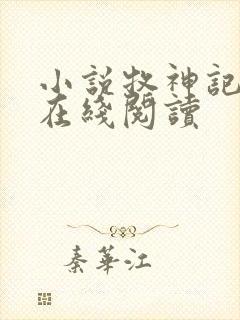 小説牧神記
在綫閱讀
秦華江